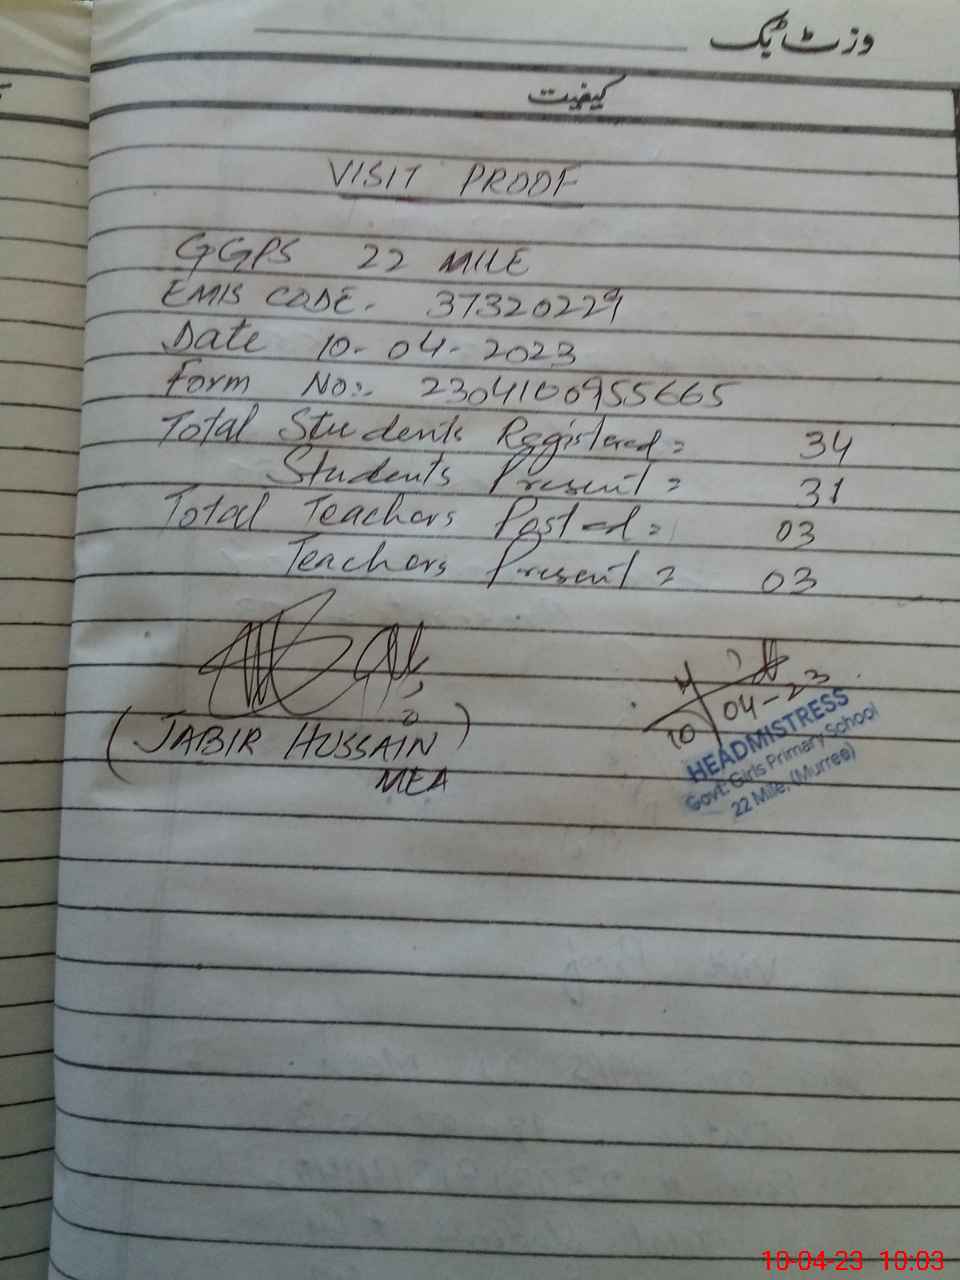 وزٹ بک
کیفیت
VISIT PROOF
GGPS 22 MILE
EMIS CODE. 37320229
Date 10-04-2023
Form No:. 2304100955665
Total Students Registered = 34
Students Present = 31
Total Teachers Posted = 03
Teachers Present = 03
(JABIR HUSSAIN)
MEA
10 04-23
HEADMISTRESS
Govt: Girls Primary School
22 Mile, (Murree)
10-04-23 10:03